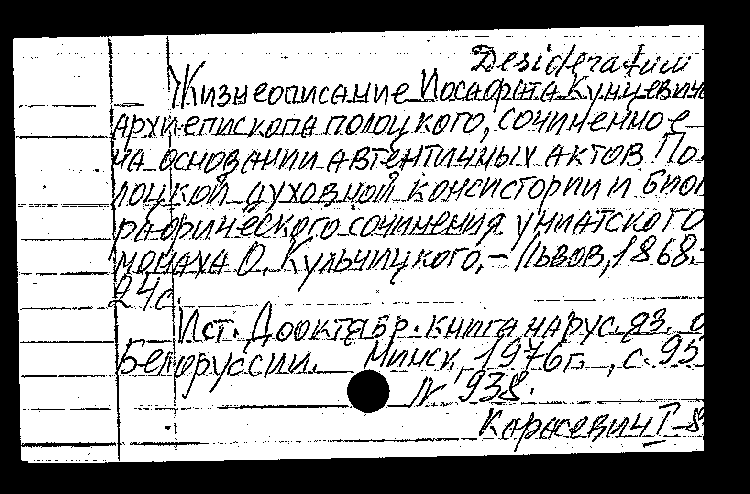 Desideratum
Жизнеописание Иосафата Кунцевича
архиепископа полоцкого, сочиненное
на основании автентичных актов По-
лоцкой духовной консистории и биог
рафического сочинения униатского
монаха О. Кульчицкого. – Львов, 1868. –
24с.
Ист. Дооктябр. книга на рус. яз. о
Белоруссии. Минск, 1976г., с. 95
N 938.
Карасевич Г-8